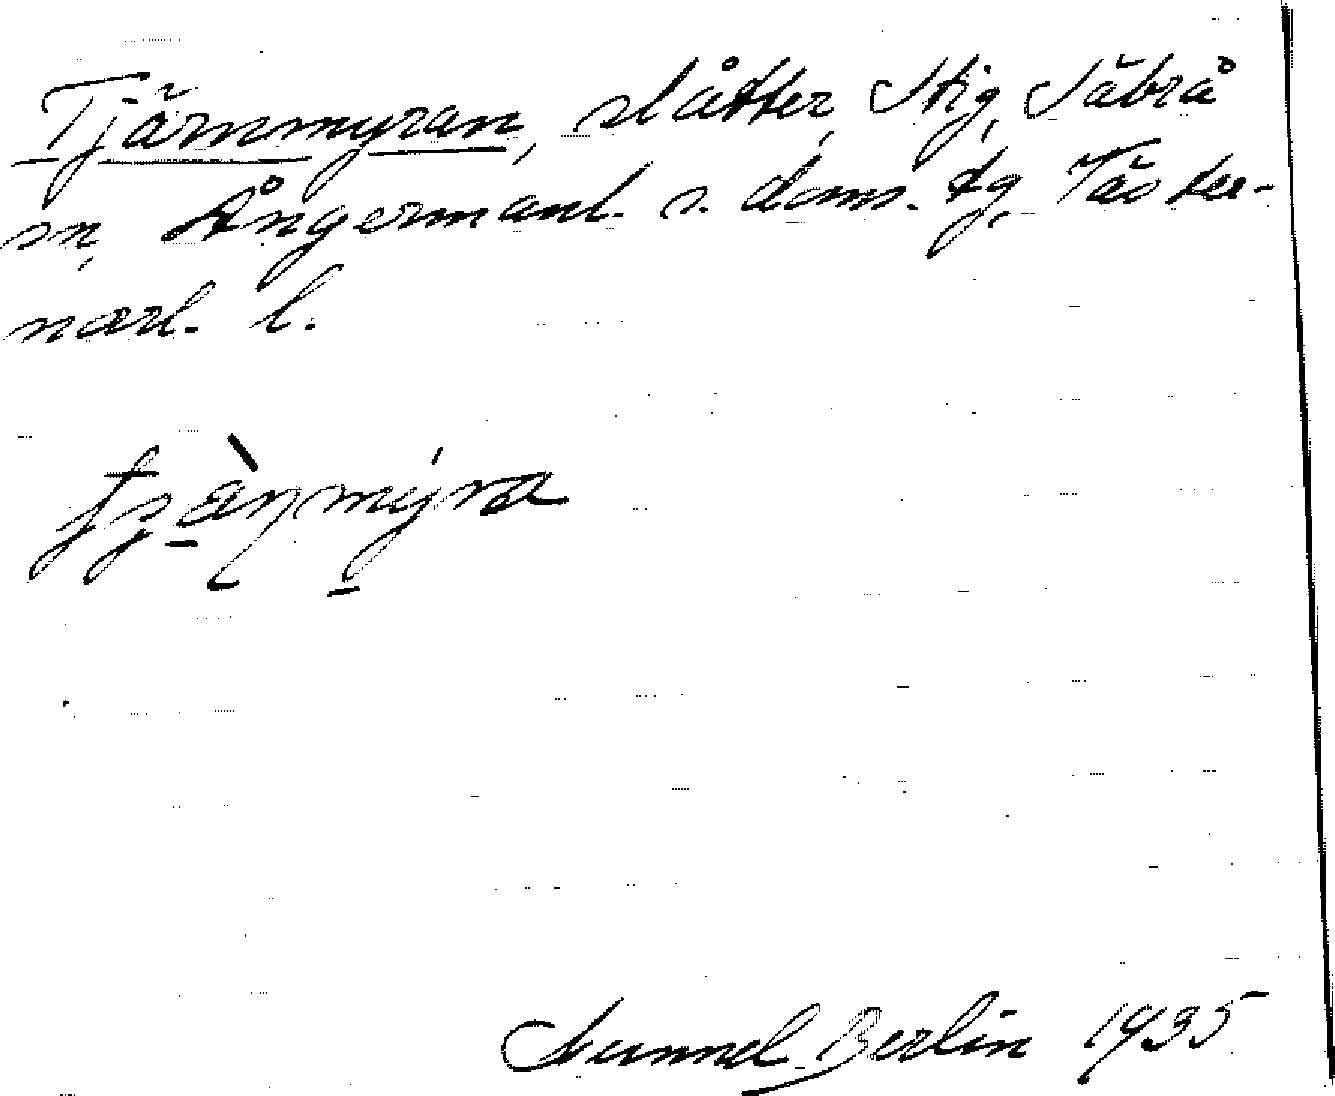 Tjärnmyran, slåtter, Stig, Säbrå
sn, Ångermanl. s. doms. tg, Väster-
norrl. l.
Gunnel Berlin 1935